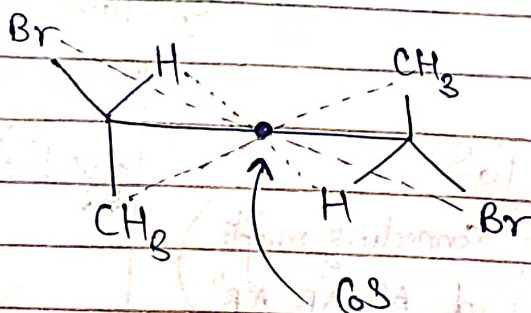 Br
H
CH3
CH3
H
Br
COS